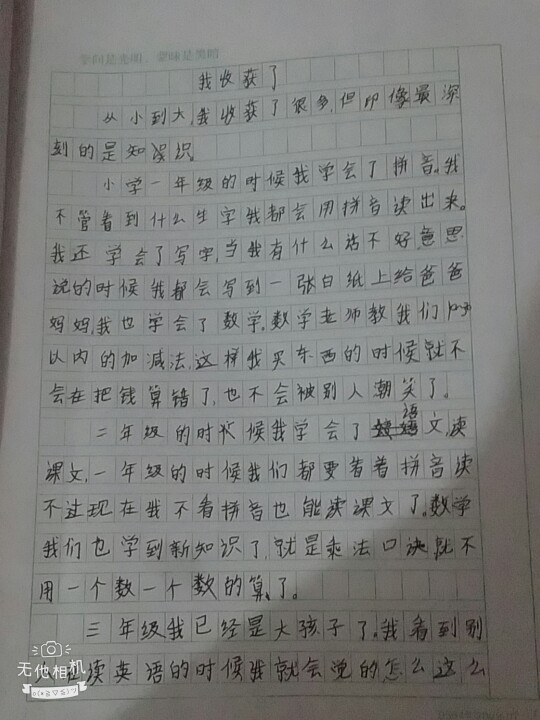 我收获了
从小到大,我收获了很多,但印像最深
刻的是知识
小学一年级的时候我学会了拼音。我
不管看到什么生字我都会用拼音读出来。
我还学会了写字,当我有什么话不好意思
说的时候我都会写到一张白纸上给爸爸
妈妈,我也学会了数学,数学老师教我们
以内的加减法,这样我买东西的时候就不
会在把钱算错了,也不会被别人朝笑了。
二年级的时候我学会了语文,读
课文,一年级的时候我们都要看着拼音读
不过现在我不看拼音也能读课文了。数学
我们也学到新知识了,就是乘法口诀就不
用一个数一个数的算了。
三年级我已经是大孩子了。我看到别
人在读英语的时候我就会说的怎么这么
无他相机